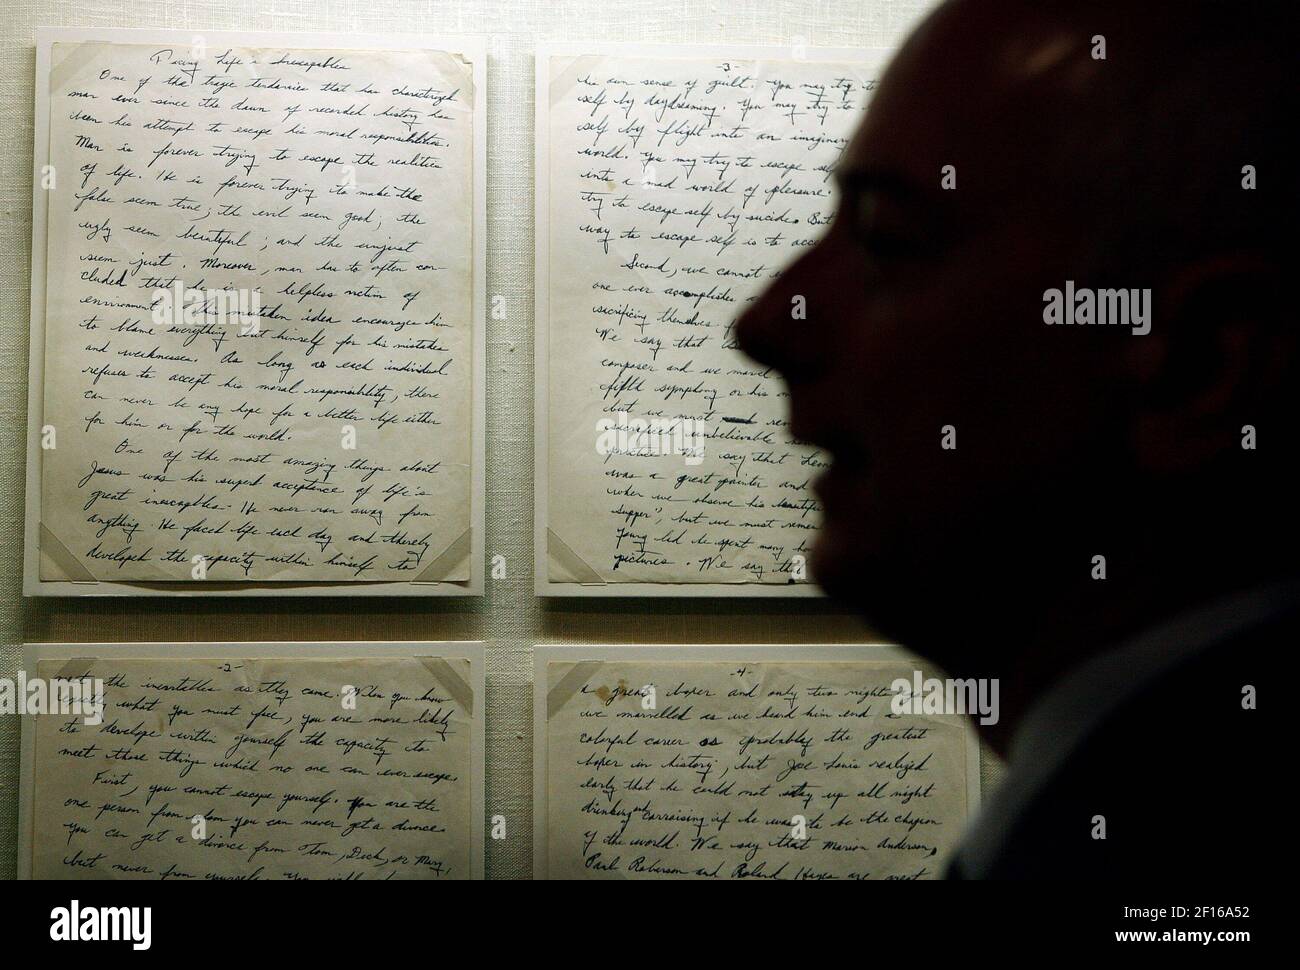 Facing Life's Inescapables
One of the tragic tendencies that has characterized
man ever since the dawn of recorded history has
been his attempt to escape his moral responsibilities.
Man is forever trying to escape the realities
of life. He is forever trying to make the
false seem true; the evil seem good; the
ugly seem beautiful; and the unjust
seem just. Moreover, man has to often con-
cluded that he is a helpless victim of
environment. This mistaken idea encourages him
to blame everything but himself for his mistakes
and weaknesses. As long as each individual
refuses to accept his moral responsibility, there
can never be any hope for a better life either
for him or for the world.
One of the most amazing things about
Jesus was his superb acceptance of life's
great inescapables. He never ran away from
anything. He faced life each day and thereby
developed the capacity within himself to
-2-
meet the inevitables as they came. When you know
exactly what you must face, you are more likely
to develope within yourself the capacity to
meet those things which no one can ever escape.
First, you cannot escape yourself. You are the
one person from whom you can never get a divorce.
You can get a divorce from Tom, Dick, or Mary,
but never from yourself. You
-3-
his own sense of guilt. You may try to
self by daydreaming. You may try to
self by flight into an imaginary
world. You may try to escape self
into a mad world of pleasure.
try to escape self by suicide. But
way to escape self is to acce
Second, we cannot
one ever accomplishes
sacrificing themselves f
We say that
composer and we marvel
fifth symphony or his
but we must rem
sacrificed unbelievable
practice. We say that Leon
was a great painter and
when we observe his beautiful
supper", but we must remem
young lad he spent many ho
pictures. We say tha
-4-
a great boxer and only two nights ago
we marvelled as we heard him end a
colorful career as probably the greatest
boxer in history, but Joe Louis realized
early that he could not stay up all night
drinking and carrousing if he was to be the champion
of the world. We say that Marion Anderson,
Paul Roberson and Roland Hayes are great
alamy
a
alamy
Image ID: 2F16A52
www.alamy.com